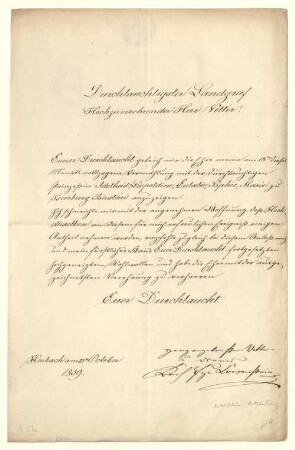 Durchlauchtigster Landgraf
Hochzuverehrender Herr Vetter!
Euerer Durchlaucht gebe ich mir die Ehre meine am 18ten dieses
Monats vollzogene Vermählung mit der durchlauchtigen
Prinzessin Adelheid, Leopoldine, Eulalie, Sophie, Marie, zu
Isenburg Birstein anzuzeigen
Ich schmeichle mir mit der angenehmen Hoffnung, dass
an diesem für mich erfreulichen Ereigniss einigen
Antheil nehmen werden, empfehle zugleich bei diesem Anlass mich
und mein Haus Euer Durchlaucht fortgesetzten
Wohlwollen und habe die Ehre mit der ausge-
zeichnetsten Verehrung zu verharren
Euer Durchlaucht
am October
1859.
Vetter
Löwenstein